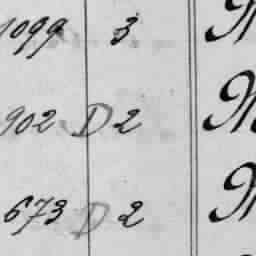 1099 3
902 D 2
673 D 2